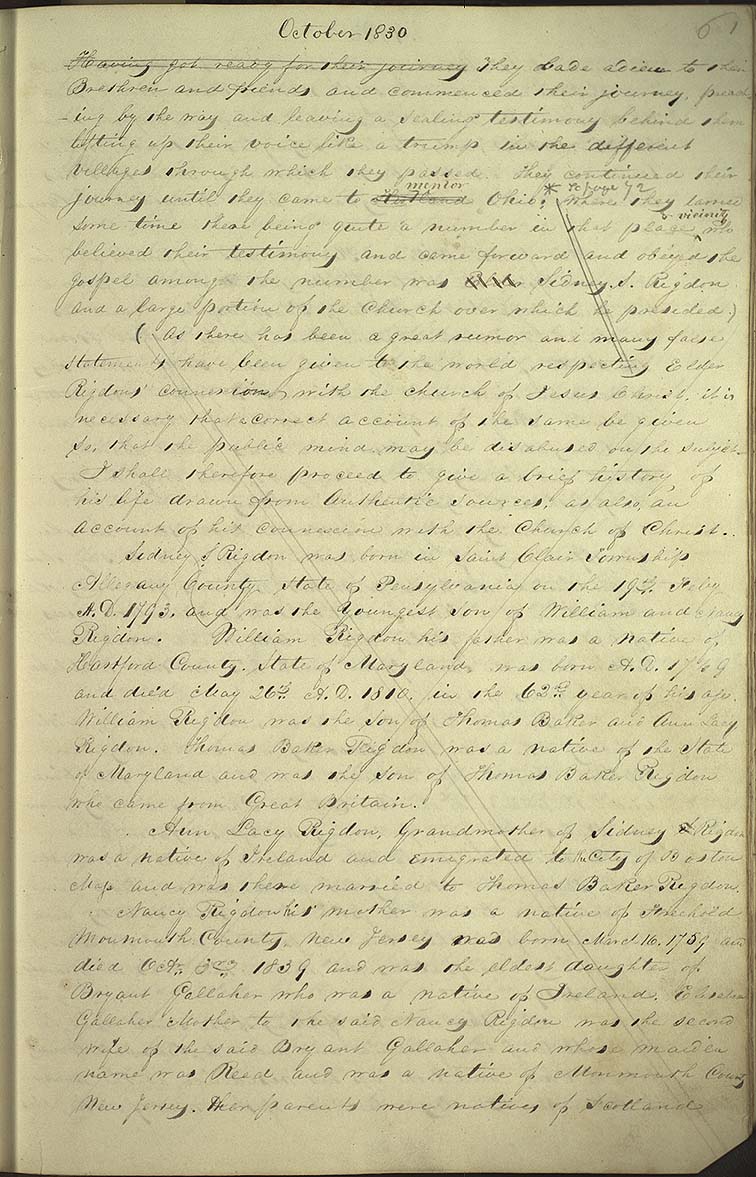 October 1830
61
Having got ready for their journey They bade adieu to their
Brethren and friends, and commenced their journey, preach
-ing by the way and leaving a sealing testimony behind them
lifting up their voice like a trump in the different
villages through which they passed. They continued their
journey until they came to Kirtland mentor Ohio; * to page 72 where they tarried
some time there being quite a number in that place & vicinity who
believed their testimony and came forward and obeyed the
gospel among the number was Sidney S. Rigdon
and a large portion of the Church over which he presided.)
( As there has been a great rumor and many false
statements have been given to the world respecting Elder
Rigdons' connexion, with the church of Jesus Christ, it is
necessary that a correct account of the same be given
so, that the public mind may be disabused on the subject.
I shall therefore proceed to give a brief history, of
his life drawn from Authentic sources, as also, an
account of his connexion with the Church of Christ.
Sidney S Rigdon was born in Saint Clair Township
Allegany County State of Pensylvania on the 19th Feby
A. D. 1793, and was the Youngest son of William and Nancy
Rigdon. William Rigdon his father was a native of
Hartford County. State of Maryland, was born A.D. 17
and died May 26th A. D. 1810. in the 62nd year of his age.
William Rigdon was the son of Thomas Baker and Ann Lacy
Rigdon. Thomas Baker Rigdon was a native of the State
of Maryland and was the son of Thomas Baker Rigdon
who came from Great Britain.
Ann Lacy Rigdon, Grandmother of Sidney S Rigdon
was a native of Ireland and emigrated to the City of Boston
Mass and was there married to Thomas Baker Rigdon.
Nancy Rigdon his mother was a native of Freehold
Monmouth County, New Jersey was born March 16. 1759 and
died Oct. 3rd 1839 and was the eldest daughter of
Bryant Gallaher who was a native of Ireland. Elizabeth
Gallaher Mother to the said Nancy Rigdon was the second
wife of the said Bryant Gallaher and whose maiden
name was Reed and was a native of Monmouth County
New Jersey. Her parents were natives of Scotland